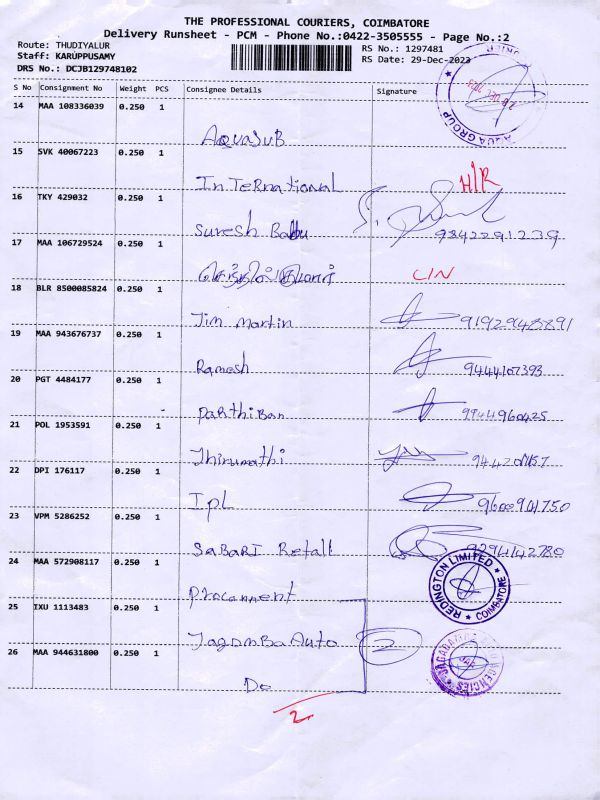 THE PROFESSIONAL COURIERS, COIMBATORE
Delivery Runsheet - PCM - Phone No.:0422-3505555 - Page No.:2
Route: THUDIYALUR
Staff: KARUPPUSAMY
DRS No.: DCJB129748102
RS No.: 1297481
RS Date: 29-Dec-2023
S No Consignment No Weight PCS Consignee Details Signature
14 MAA 108336039 0.250 1
AquaSuB
15 SVK 40067223 0.250 1
InTeRnational H/R
16 TKY 429032 0.250 1
Suresh Babu 9842291239
17 MAA 106729524 0.250 1
L/N
18 BLR 8500085824 0.250 1
Jim martin
19 MAA 943676737 0.250 1
Ramesh 9444107393
20 PGT 4484177 0.250 1
Parthiban 9944960425
21 POL 1953591 0.250 1
Thirumathi
22 DPI 176117 0.250 1
IPL 9600901750
23 VPM 5286252 0.250 1
SaBaRI Retail
24 MAA 572908117 0.250 1
REDINGTON LIMITED
COIMBATORE
25 IXU 1113483 0.250 1
JagamBa Auto 2
26 MAA 944631800 0.250 1
Do
2.
AQUA GROUP